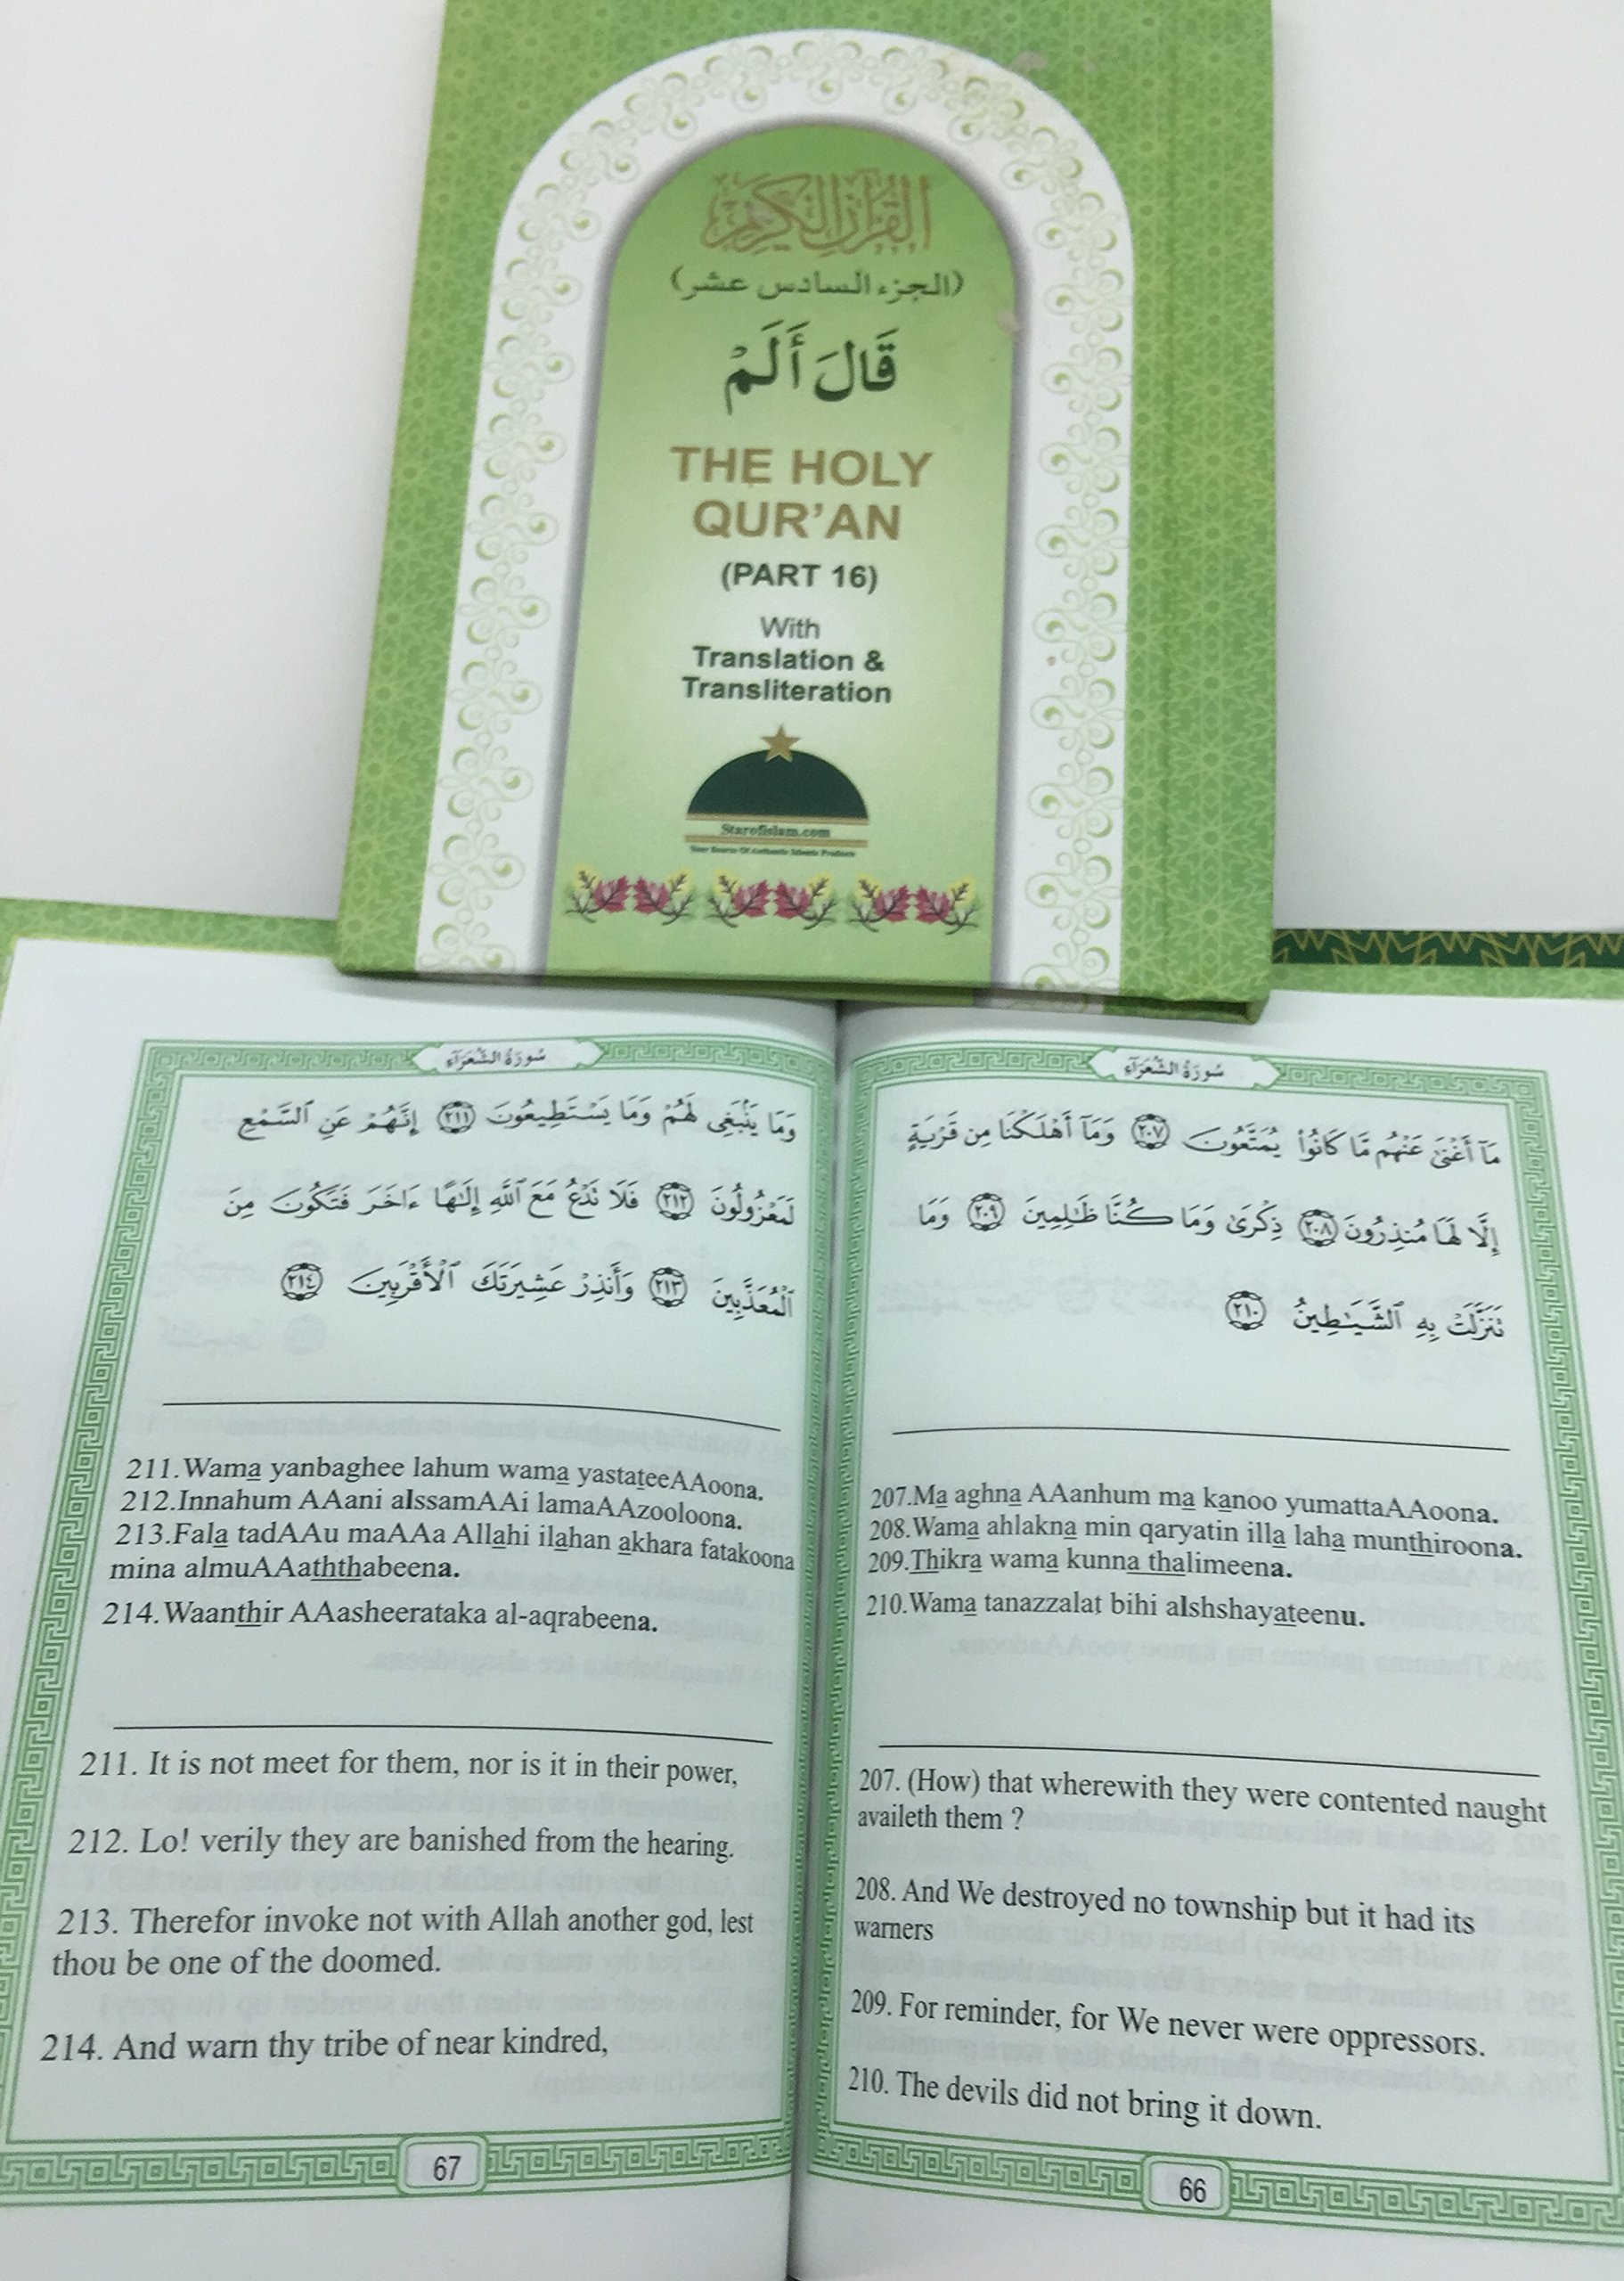 القرآن الكريم
(الجزء السادس عشر)
قَالَ أَلَمْ
THE HOLY
QUR'AN
(PART 16)
With
Translation &
Transliteration
Starofislam.com
Your Source Of Authentic Islamic Products
سُورَةُ الشُّعَرَآءِ
مَآ أَغْنَىٰ عَنْهُم مَّا كَانُوا۟ يُمَتَّعُونَ ٢٠٧ وَمَآ أَهْلَكْنَا مِن قَرْيَةٍ
إِلَّا لَهَا مُنذِرُونَ ٢٠٨ ذِكْرَىٰ وَمَا كُنَّا ظَـٰلِمِينَ ٢٠٩ وَمَا
تَنَزَّلَتْ بِهِ ٱلشَّيَـٰطِينُ ٢١٠
207.Ma aghna AAanhum ma kanoo yumattaAAoona.
208.Wama ahlakna min qaryatin illa laha munthiroona.
209.Thikra wama kunna thalimeena.
210.Wama tanazzalat bihi alshshayateenu.
207. (How) that wherewith they were contented naught
availeth them ?
208. And We destroyed no township but it had its
warners
209. For reminder, for We never were oppressors.
210. The devils did not bring it down.
66
سُورَةُ الشُّعَرَآءِ
وَمَا يَنۢبَغِى لَهُمْ وَمَا يَسْتَطِيعُونَ ٢١١ إِنَّهُمْ عَنِ ٱلسَّمْعِ
لَمَعْزُولُونَ ٢١٢ فَلَا تَدْعُ مَعَ ٱللَّهِ إِلَـٰهًا ءَاخَرَ فَتَكُونَ مِنَ
ٱلْمُعَذَّبِينَ ٢١٣ وَأَنذِرْ عَشِيرَتَكَ ٱلْأَقْرَبِينَ ٢١٤
211.Wama yanbaghee lahum wama yastateeAAoona.
212.Innahum AAani alssamAAi lamaAAzooloona.
213.Fala tadAAu maAAa Allahi ilahan akhara fatakoona
mina almuAAaththabeena.
214.Waanthir AAasheerataka al-aqrabeena.
211. It is not meet for them, nor is it in their power,
212. Lo! verily they are banished from the hearing.
213. Therefor invoke not with Allah another god, lest
thou be one of the doomed.
214. And warn thy tribe of near kindred,
67